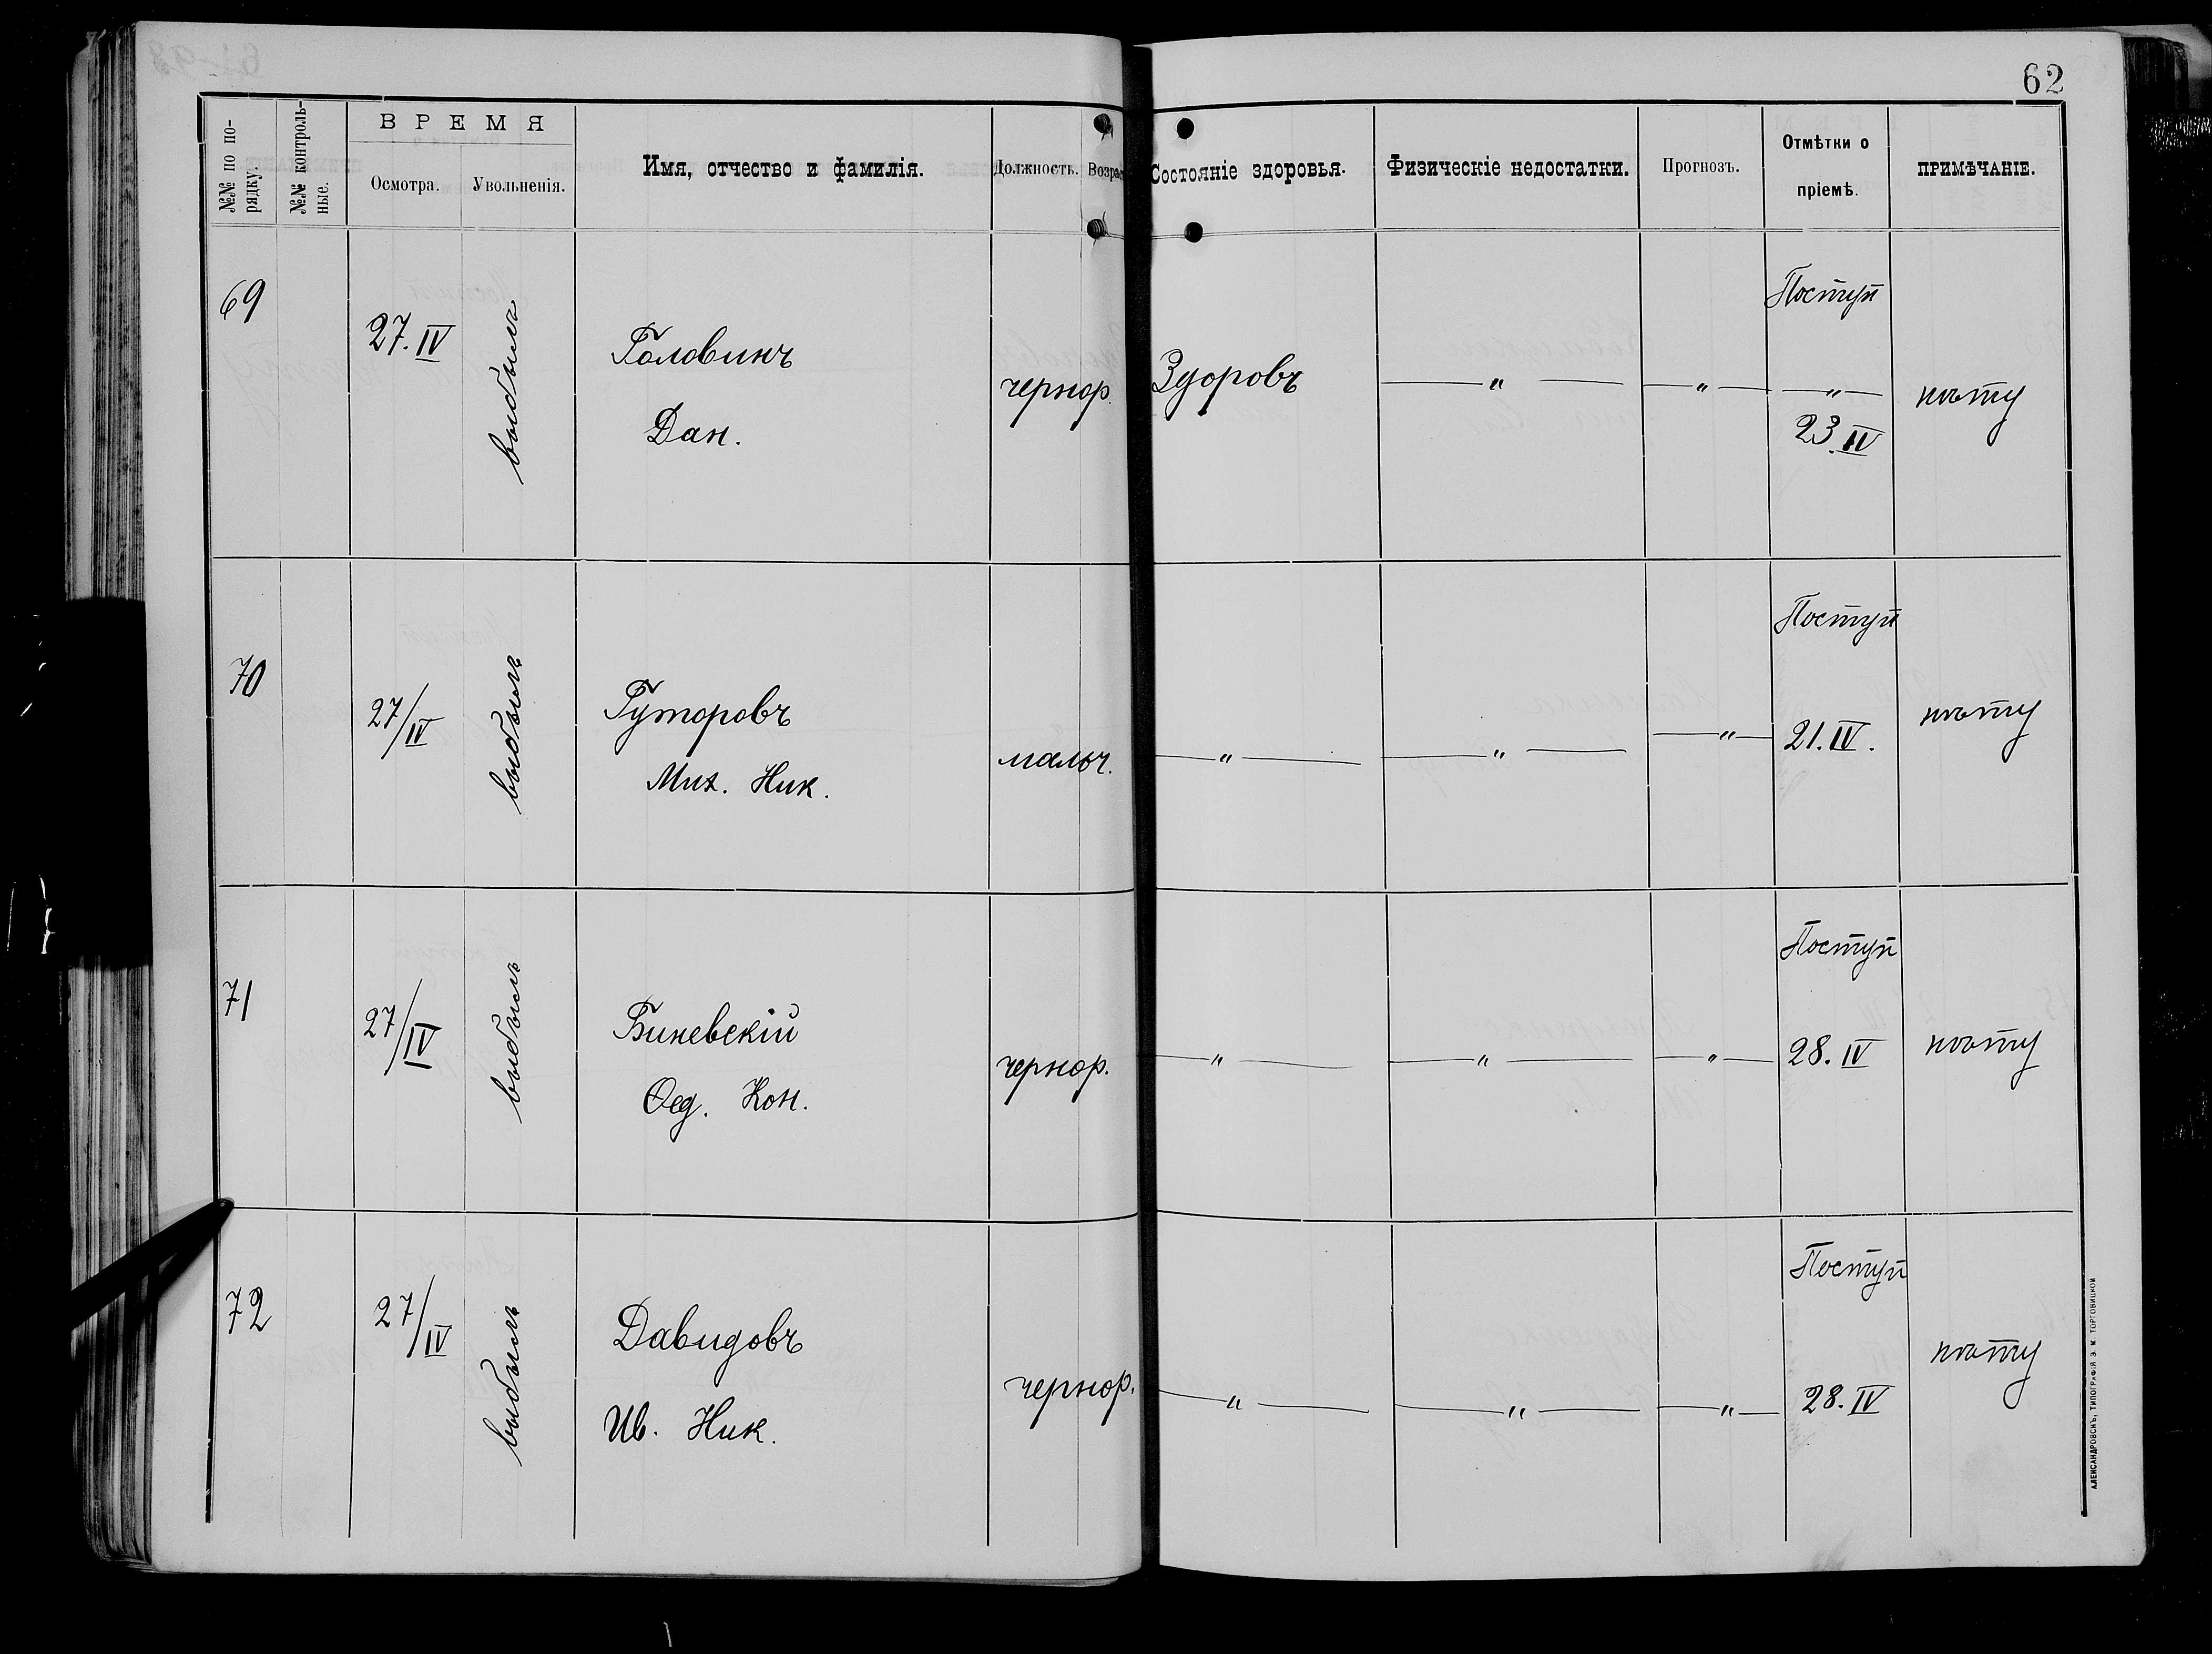 62
№№ по по-
рядку.
№№ контроль-
ные.
ВРЕМЯ
Осмотра.
Увольненія.
Имя, отчество и фамилія.
Должность.
Возра
Состояніе здоровья.
Физическіе недостатки.
Прогнозъ.
Отмѣтки о
пріемѣ.
ПРИМѢЧАНІЕ.
69
27.IV
выбылъ
Головинъ
Дан.
чернор.
Здоровъ
— " —
— " —
Поступ
— " —
23.IV
нѣту
70
27/IV
выбылъ
Гуторовъ
Мих. Ник.
мальч.
— " —
— " —
— " —
Поступ
21.IV.
нѣту
71
27/IV
выбылъ
Биневскій
Ѳед. Кон.
чернор.
— " —
— " —
— " —
Поступ
28.IV
нѣту
72
27/IV
выбылъ
Давидовъ
Ив. Ник.
чернор.
— " —
— " —
— " —
Поступ
28.IV
нѣту
АЛЕКСАНДРОВСКЪ, ТИПОГРАФІЯ Э. М. ТОРГОВИЦКОЙ